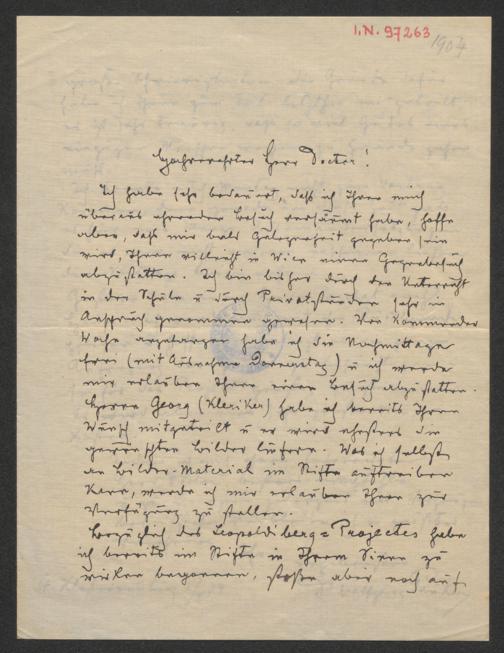 I.N. 97263
1904
Hochverehrter Herr Doctor!
Ich habe sehr bedauert, daß ich Ihren mich
überaus ehrenden Besuch versäumt habe, hoffe
aber, daß mir bald Gelegenheit gegeben sein
wird, Ihnen vielleicht in Wien einen Gegenbesuch
abzustatten. Ich bin bisher durch den Unterricht
in der Schule u durch Privatstunden sehr in
Anspruch genommen gewesen. Von kommender
Woche angefangen habe ich die Nachmittage
frei (mit Ausnahme Donnerstag) u ich werde
mir erlauben Ihnen einen Besuch abzustatten.
Herrn Georg (Kleriker) habe ich bereits Ihren
Wunsch mitgeteilt u er wird ehestens die
gewünschten Bilder liefern. Was ich selbst
an Bilder-Material im Stifte auftreiben
kann, werde ich mir erlauben Ihnen zur
Verfügung zu stellen.
Bezüglich des Leopoldiberg-Projectes habe
ich bereits im Stifte in Ihrem Sinne zu
wirken begonnen, stoße aber noch auf